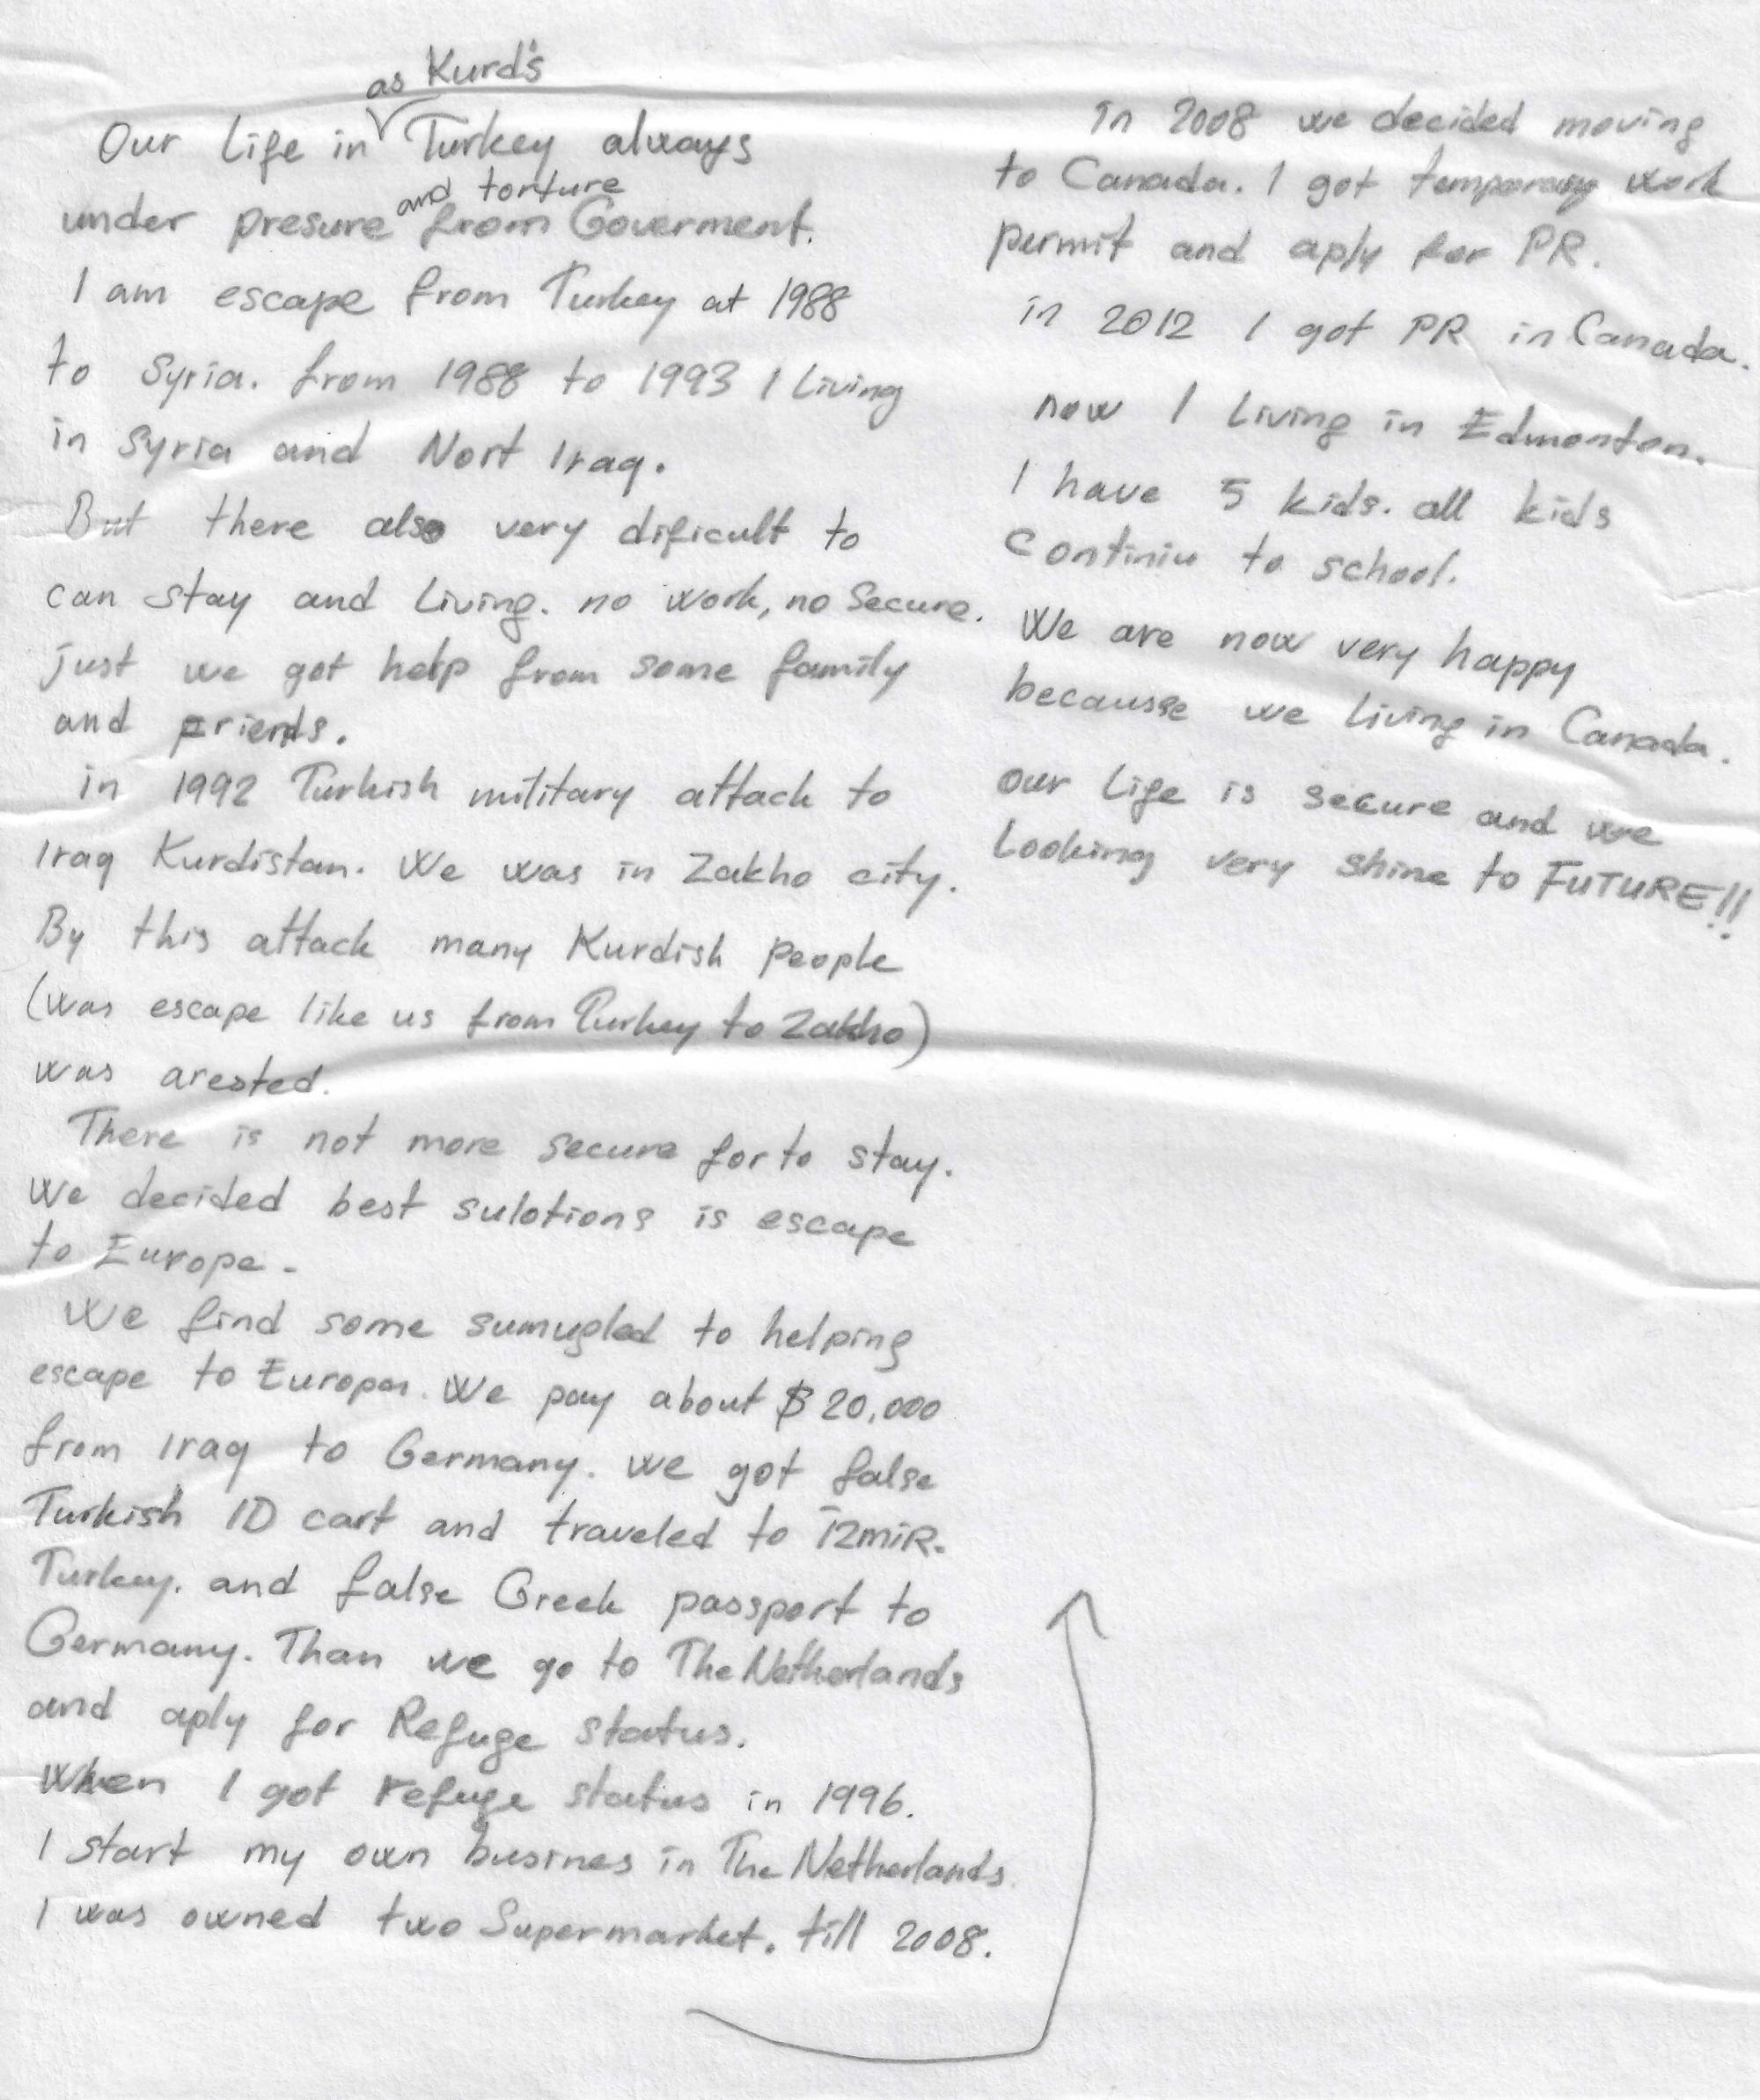 as Kurd's
Our Life in Turkey always
and torture
under presure from Goverment.
I am escape from Turkey at 1988
to Syria. from 1988 to 1993 I Living
in Syria and Nort Iraq.
But there also very dificult to
can stay and Living. no work, no Secure.
just we got help from some family
and friends.
in 1992 Turkish military attack to
Iraq Kurdistan. We was in Zakho city.
By this attack many Kurdish people
(was escape like us from Turkey to Zakho)
was arested.
There is not more secure for to stay.
We decided best sulotions is escape
to Europe.
We find some sumugled to helping
escape to Europa. We pay about $20,000
from Iraq to Germany. we got false
Turkish ID cart and traveled to İzmiR.
Turkey. and false Greek passport to
Germany. Than we go to The Netherlands
and aply for Refuge status.
When I got refuge status in 1996.
I start my own busines in The Netherlands.
I was owned two Supermarket. till 2008.
in 2008 we decided moving
to Canada. I got temporary work
permit and aply for PR.
in 2012 I got PR in Canada.
now I Living in Edmonton.
I have 5 kids. all kids
Continiu to school.
We are now very happy
becausse we living in Canada.
our Life is secure and we
Looking very shine to FUTURE!!